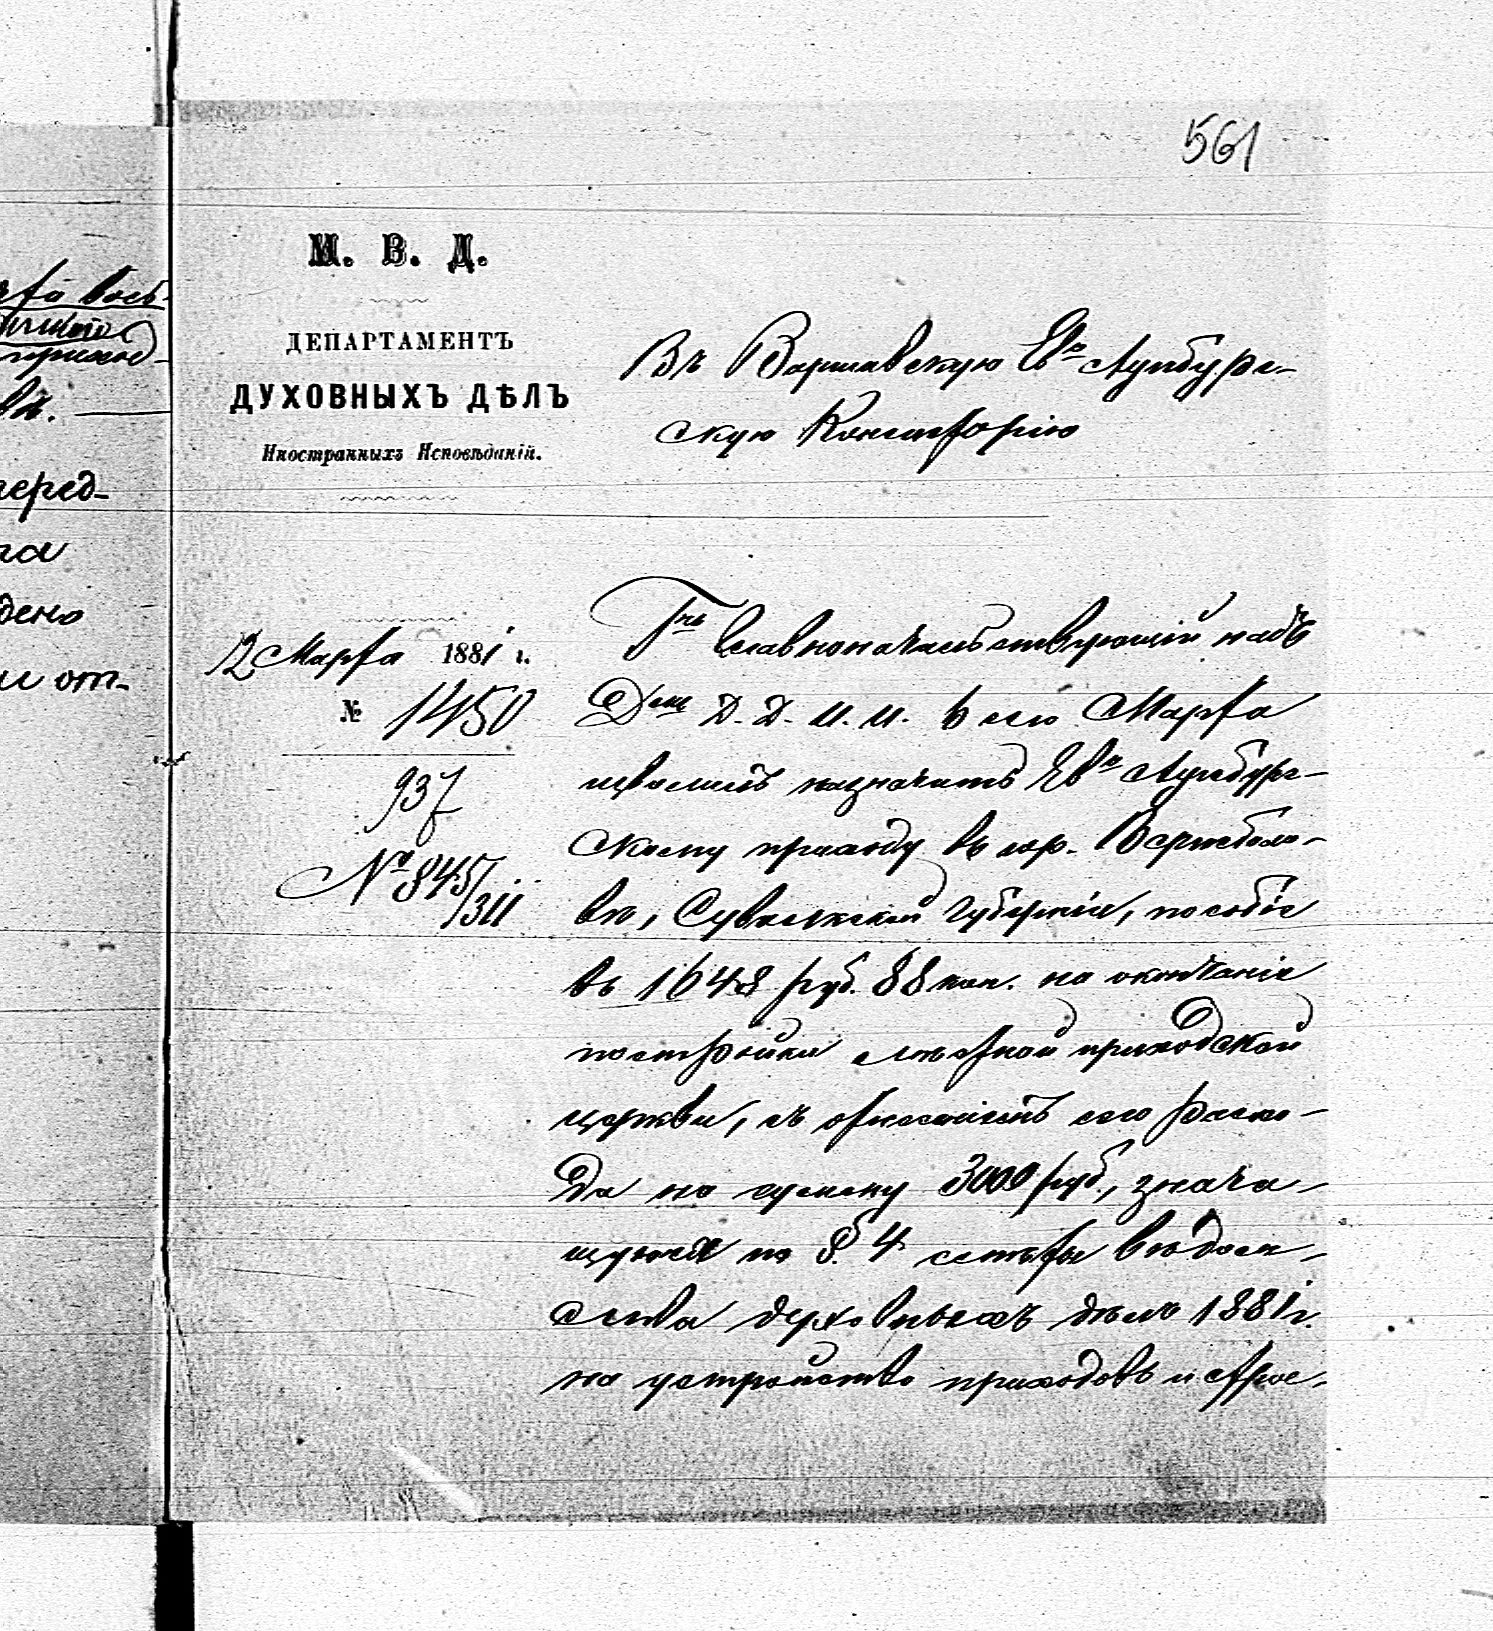 561
М. В. Д.
ДЕПАРТАМЕНТЪ
ДУХОВНЫХЪ ДѢЛЪ
Иностранныхъ Исповѣданій.
12 Марта 1881 г.
№ 1450
937
№ 845/311
Въ Варшавскую Ев. Аугсбург-
скую Консисторію
Г-нъ Главноначальствующій надъ
Д-омъ Д. Д. И. И. 6 сего Марта
изволилъ назначить Ев. Аугсбург-
скому приходу въ гор. Вержболо-
вѣ, Сувалкской губерніи, пособіе
въ 1648 руб. 88 коп. на окончаніе
постройки мѣстной приходской
церкви, съ отнесеніемъ сего расхо-
да на сумму 3000 руб., знача-
щуюся по §. 4 смѣты вѣдом-
ства духовныхъ дѣлъ 1881 г.
на устройство приходовъ и строе-
перед-
на
дено
и от-